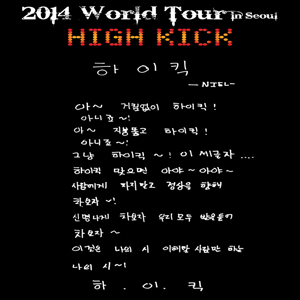 2014 World Tour in Seoul
HIGH KICK
하 이 킥
- NIEL -
아~ 거침없이 하이킥!
아니죠~!
아~ 지붕뚫고 하이킥!
아니죠~!
그냥 하이킥~! 이 세글자....
하이킥 맞으면 아야~아야~
사람에게 하지말고 정상을 향해
차보자~!
신명나게 차보자 우리 모두
차보자~
이것은 나의 시 이해할 사람만 하삼
나의 시~!
하 . 이 . 킥